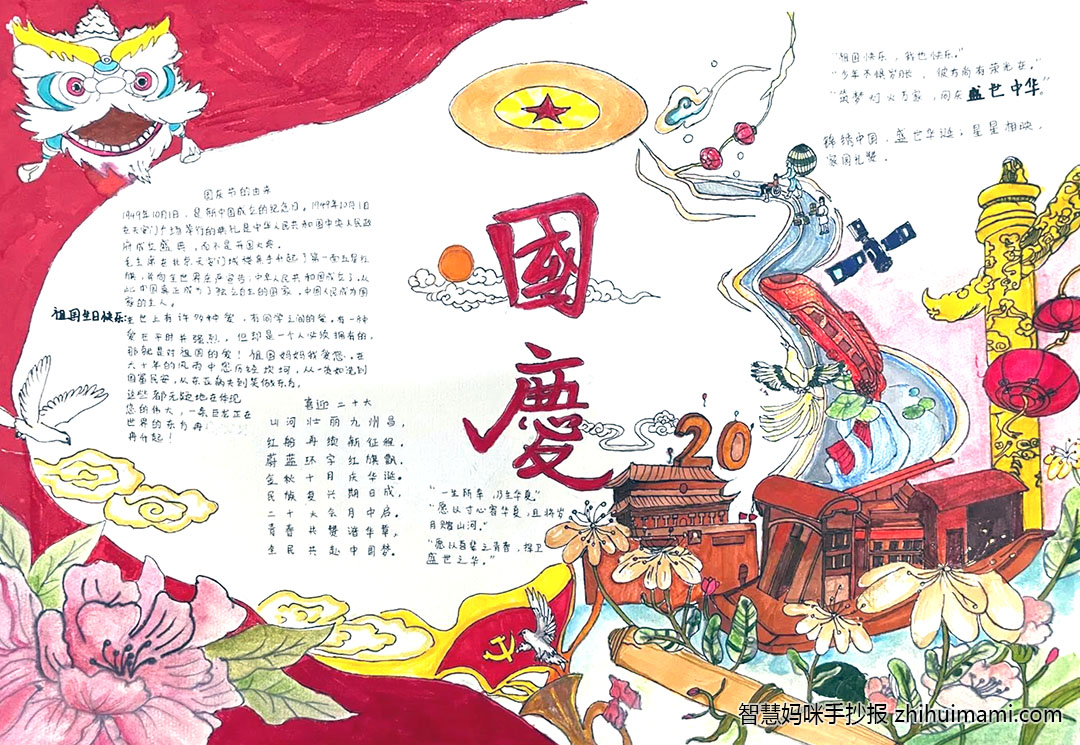 国庆节的由来
1949年10月1日,是新中国成立的纪念日。1949年10月1日
在天安门广场举行的典礼是中华人民共和国中央人民政
府成立盛典,而不是开国大典。
毛主席在北京天安门城楼亲手升起了第一面五星红
旗,并向全世界庄严宣告:中华人民共和国成立了,从
此中国真正成为了独立自主的国家,中国人民成为国
家的主人。
祖国生日快乐:
世上有许多种爱,有同学之间的爱。有一种
爱它平时并强烈,但却是一个人必须拥有的,
那就是对祖国的爱!祖国妈妈我爱您,在
六十年的风雨中您历经坎坷,从一
国富民安,从东亚病夫到
这些都无疑地在体现
您的伟大,一条巨龙正在
世界的东方再
冉升起!
喜迎二十大
山河壮丽九州昌,
红船再续新征程。
蔚蓝环宇红旗飘,
金秋十月庆华诞。
民族复兴期日成,
二十大会月中启。
青春共赞谱华章,
全民共赴中国梦。
國
慶
20
"一生所幸,乃生华夏"
"愿以寸心寄华夏,且将岁
月赠山河。"
"愿以吾辈之青春,捍卫
盛世之华。"
"祖国快乐,我也快乐。"
"少年不惧岁月长,彼方尚有荣光在。"
"筑梦灯火万家,同庆盛世中华。"
锦绣中国,盛世华诞;星星相映,
家国礼赞。
智慧妈咪手抄报 zhihuimami.com